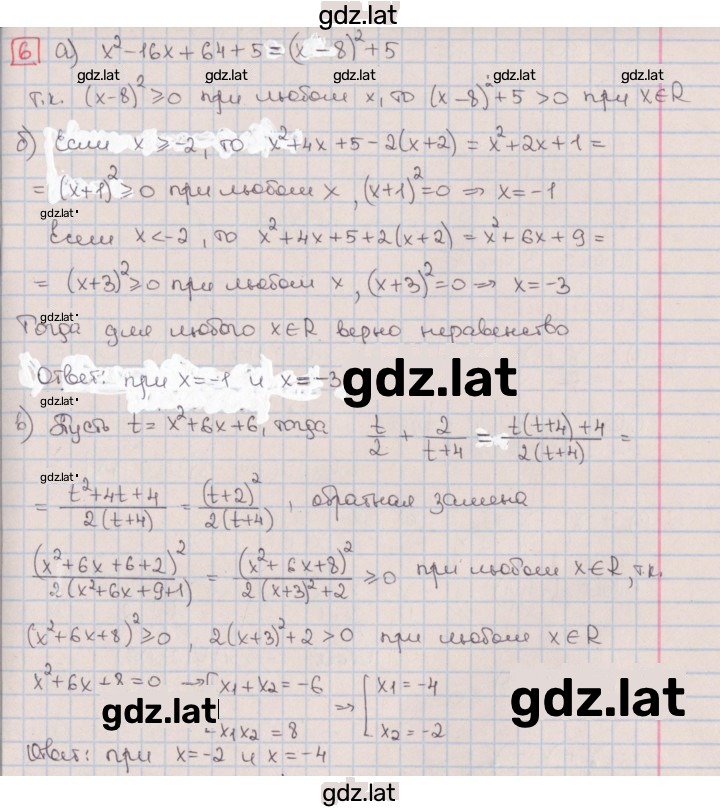 gdz.lat
6 а) x²-16x+64+5=(x-8)²+5
gdz.lat gdz.lat gdz.lat gdz.lat
т.к. (x-8)²≥0 при любом x, то (x-8)²+5>0 при x∈R
б) Если x≥-2, то x²+4x+5-2(x+2)=x²+2x+1=
=(x+1)²≥0 при любом x, (x+1)²=0 ⇒ x=-1
gdz.lat
Если x<-2, то x²+4x+5+2(x+2)=x²+6x+9=
=(x+3)²≥0 при любом x, (x+3)²=0 ⇒ x=-3
gdz.lat
Тогда для любого x∈R верно неравенство
Ответ: при x=-1 и x=-3
gdz.lat
gdz.lat
в) Пусть t=x²+6x+6, тогда t/2 + 2/(t+4) = (t(t+4)+4)/(2(t+4)) =
gdz.lat
= (t²+4t+4)/(2(t+4)) = (t+2)²/(2(t+4)), обратная замена
(x²+6x+6+2)²/(2(x²+6x+9+1)) = (x²+6x+8)²/(2(x+3)²+2) ≥0 при любом x∈R, т.к.
(x²+6x+8)²≥0, 2(x+3)²+2>0 при любом x∈R
x²+6x+8=0 → [x₁+x₂=-6 ⇒ [x₁=-4
gdz.lat x₁x₂=8 x₂=-2
gdz.lat
Ответ: при x=-2 и x=-4
gdz.lat